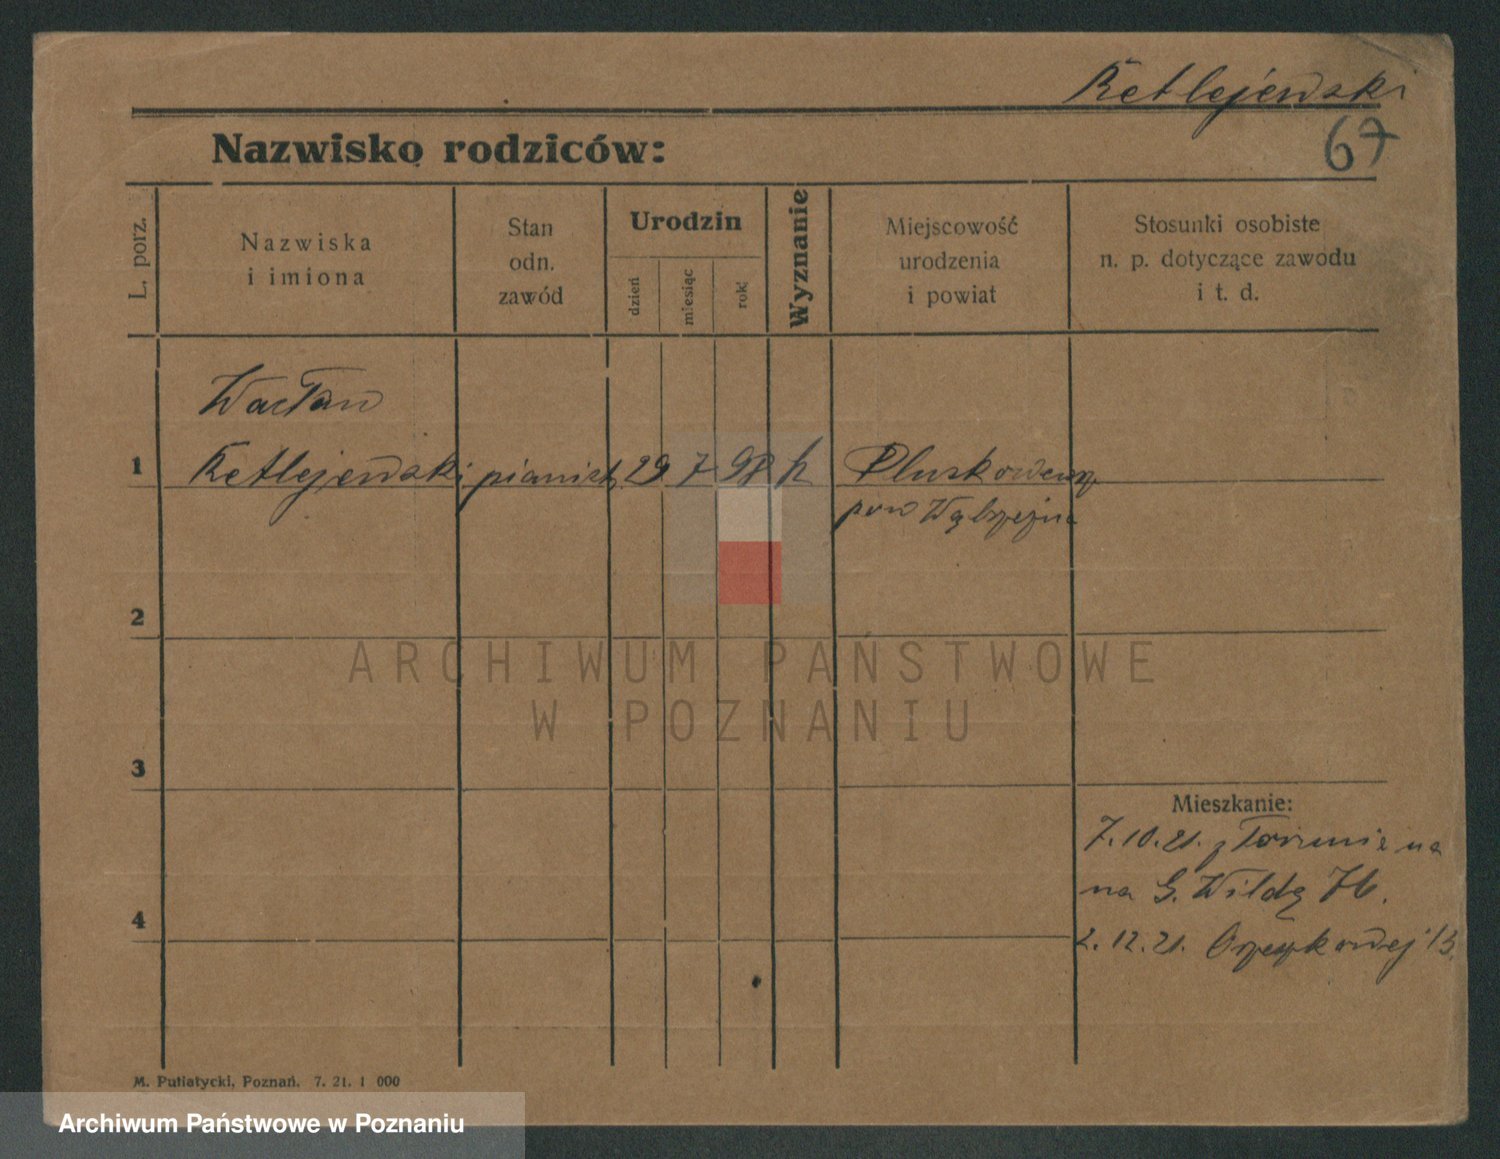 Retlejewski
67
Nazwisko rodziców:
L. porz.
Nazwiska
i imiona
Stan
odn.
zawód
Urodzin
dzień
miesiąc
rok
Wyznanie
Miejscowość
urodzenia
i powiat
Stosunki osobiste
n. p. dotyczące zawodu
i t. d.
Wacław
1 Retlejewski pianista 29 7 98 k Pluskowęsy
pow Wąbrzeźna
2
ARCHIWUM PAŃSTWOWE
W POZNANIU
3
Mieszkanie:
7.10.21. z Torunia na
na G. Wildę 76.
4
2.12.21. Orzeszkowej 13.
M. Putiatycki, Poznań. 7. 21. 1 000
Archiwum Państwowe w Poznaniu